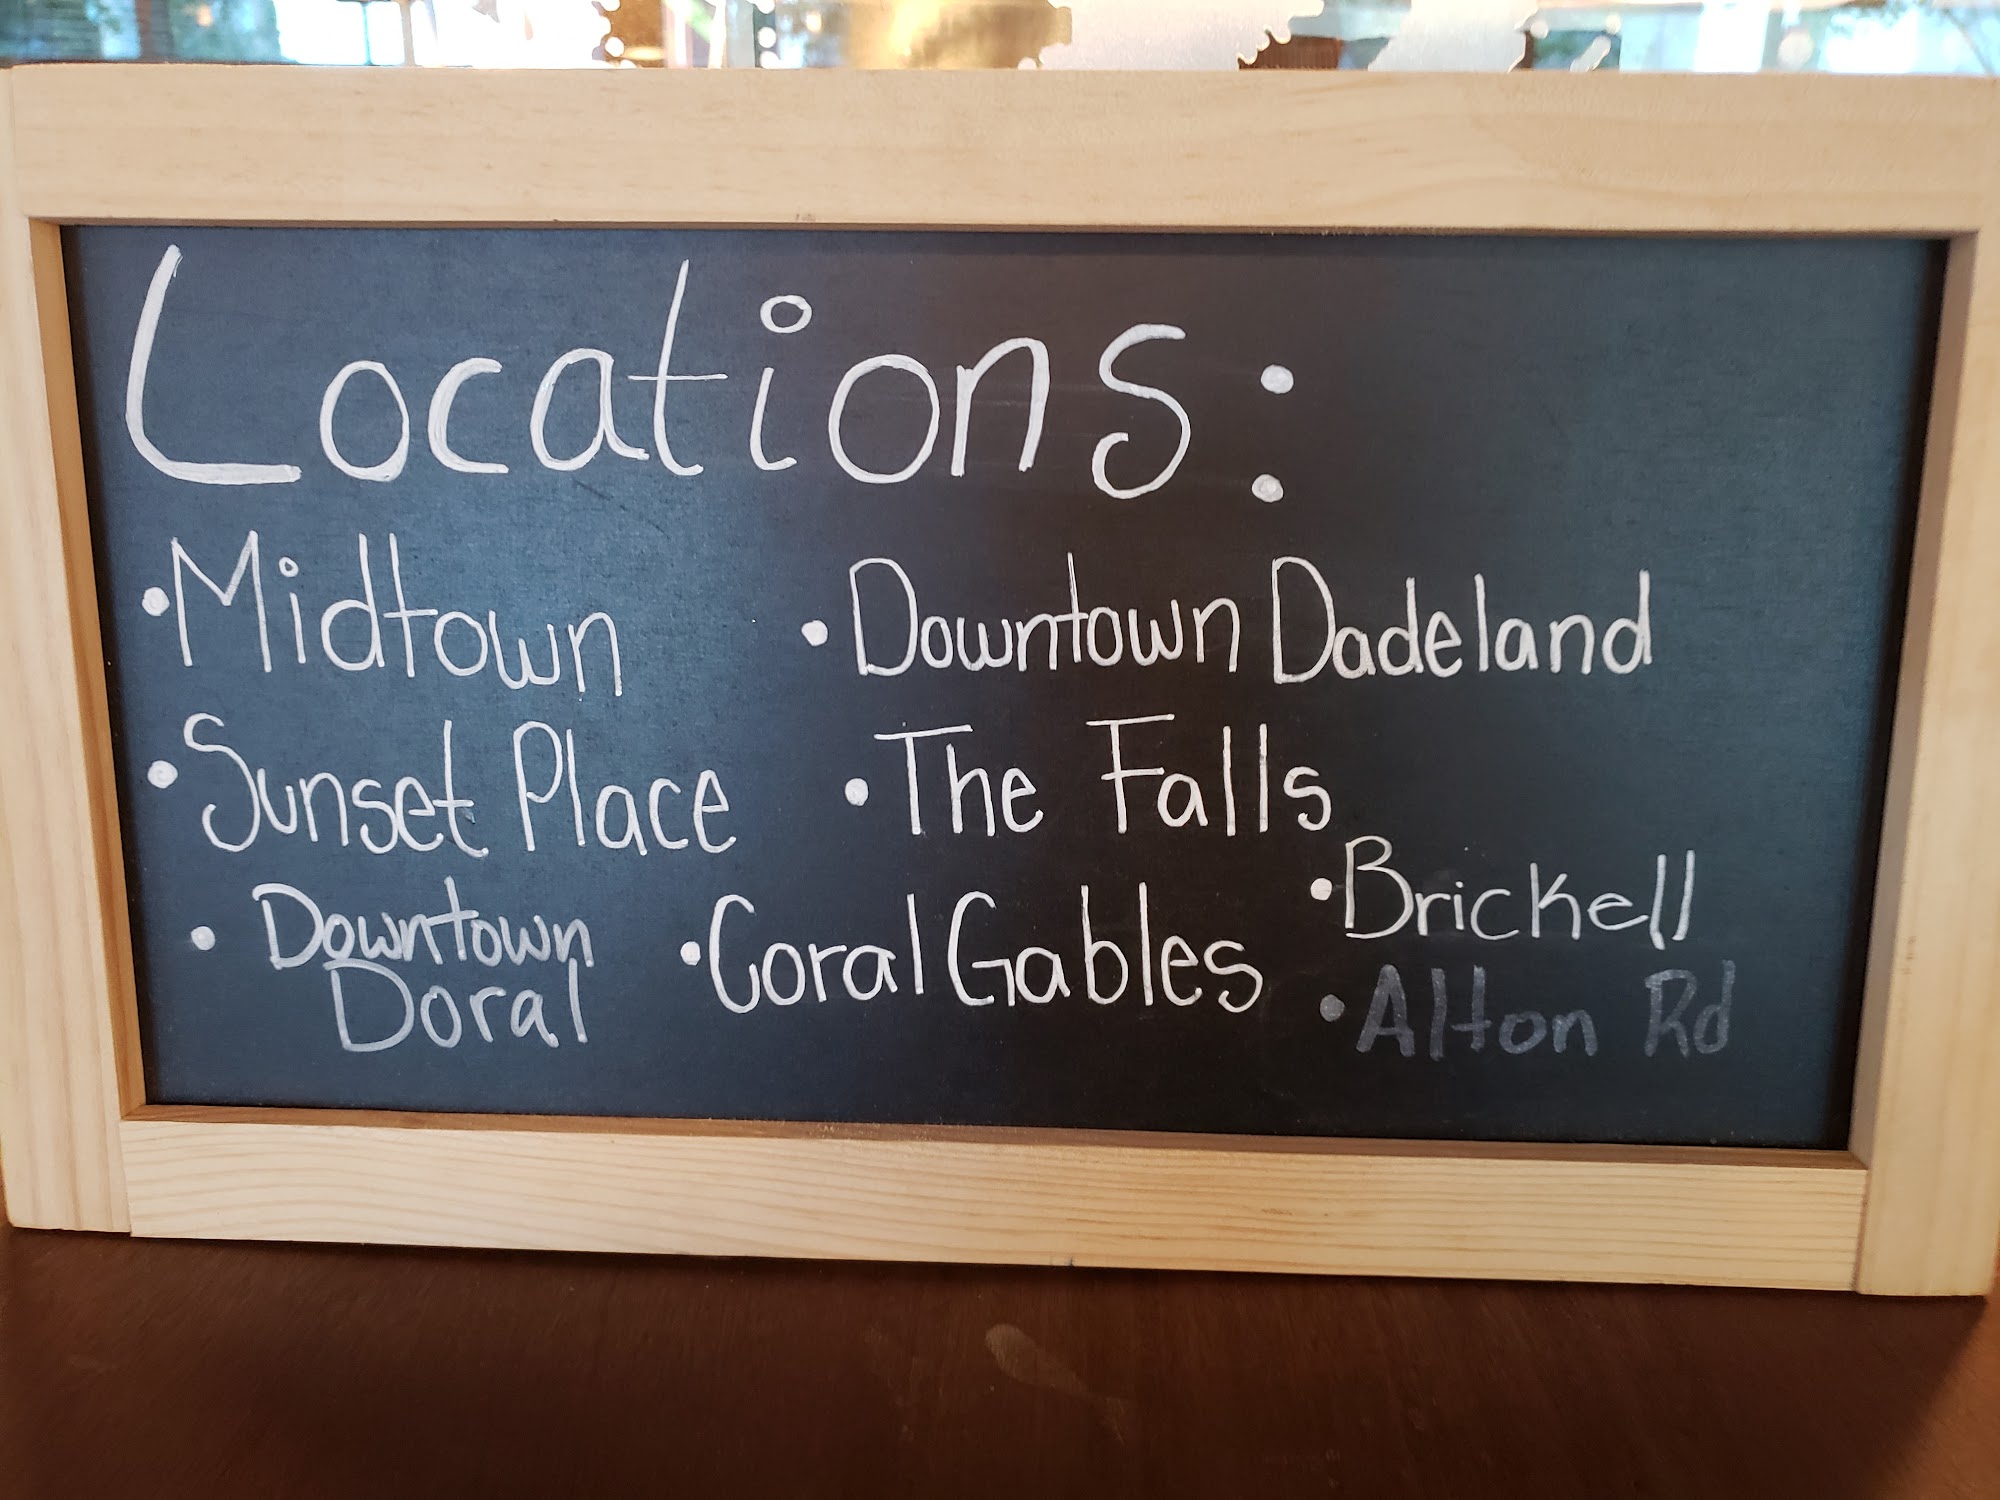 Locations:
• Midtown
• Downtown Dadeland
• Sunset Place
• The Falls
• Downtown
Doral
• Coral Gables
• Brickell
• Alton Rd